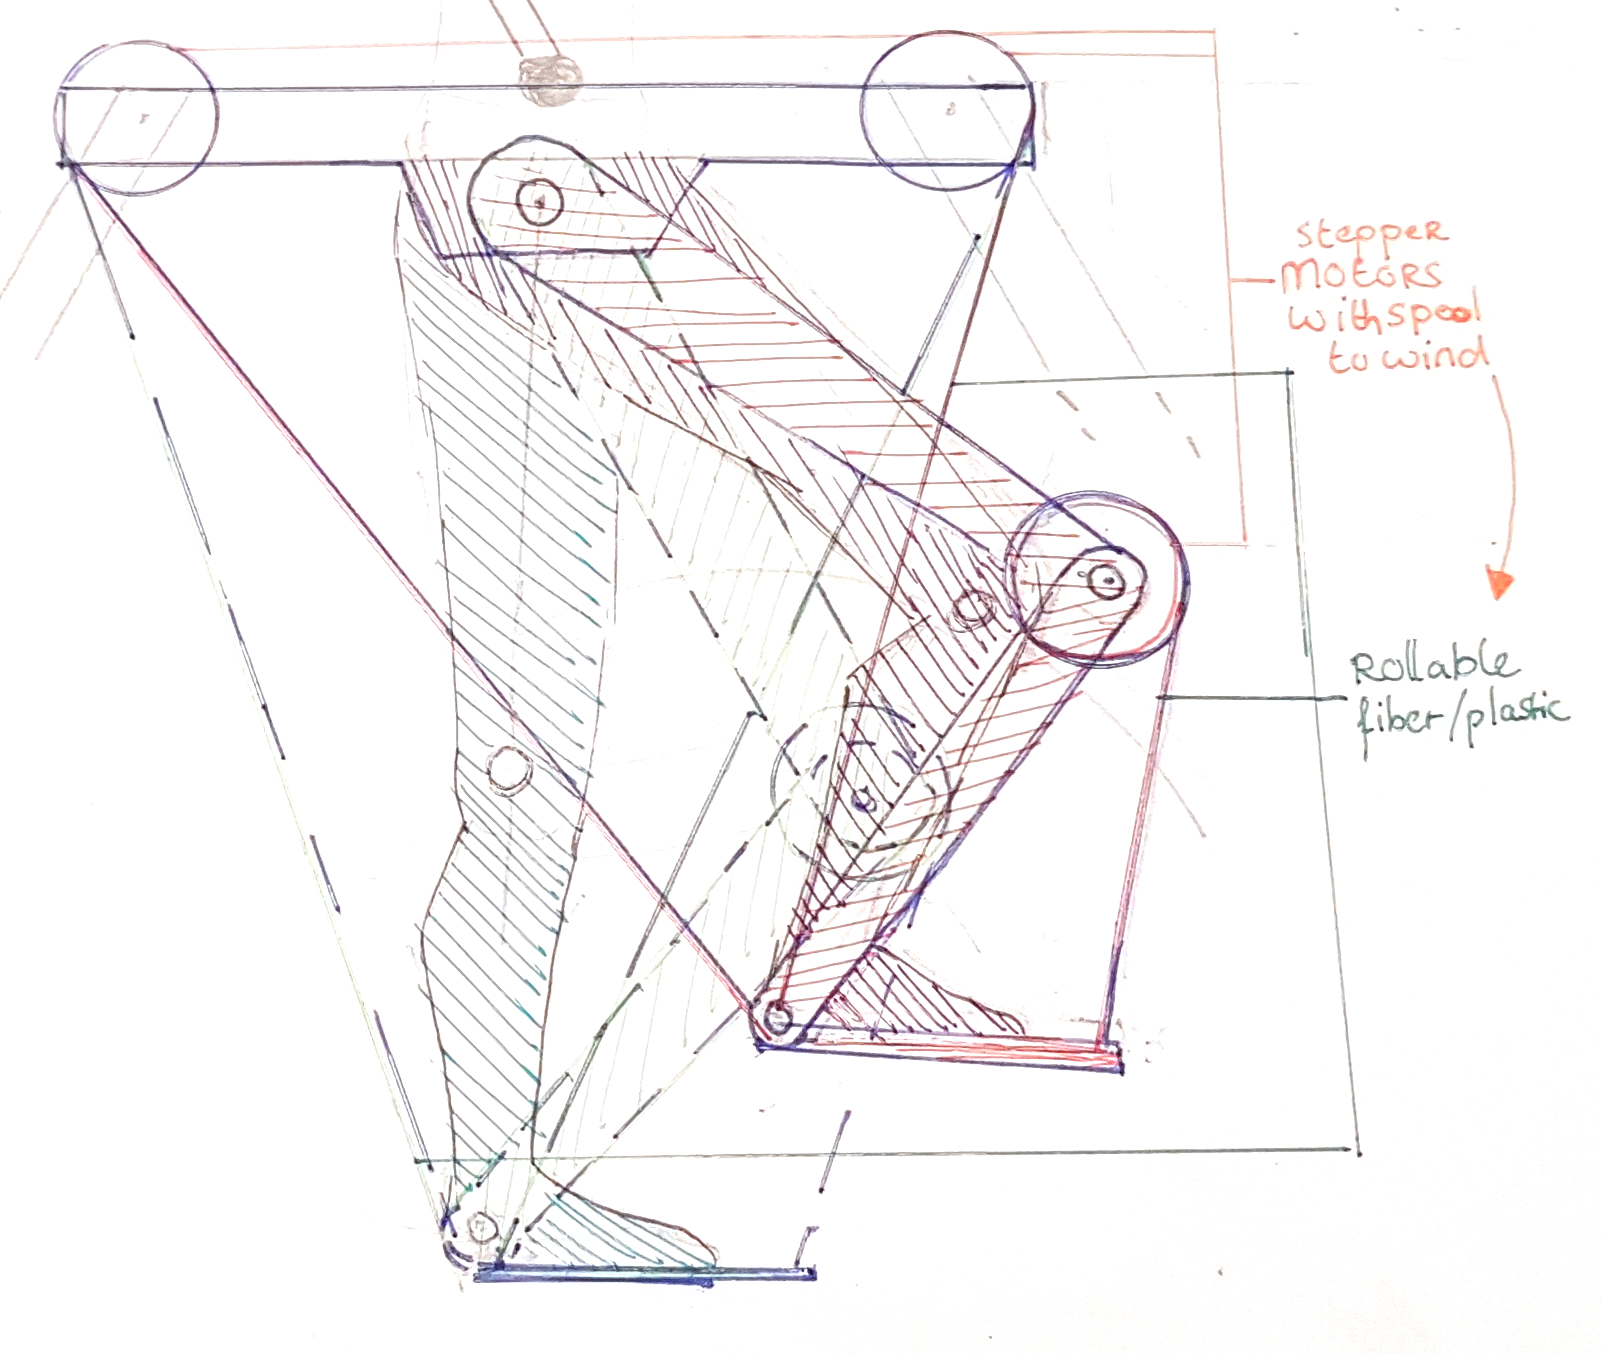 stepper
MOTORS
with spool
to wind
Rollable
fiber/plastic